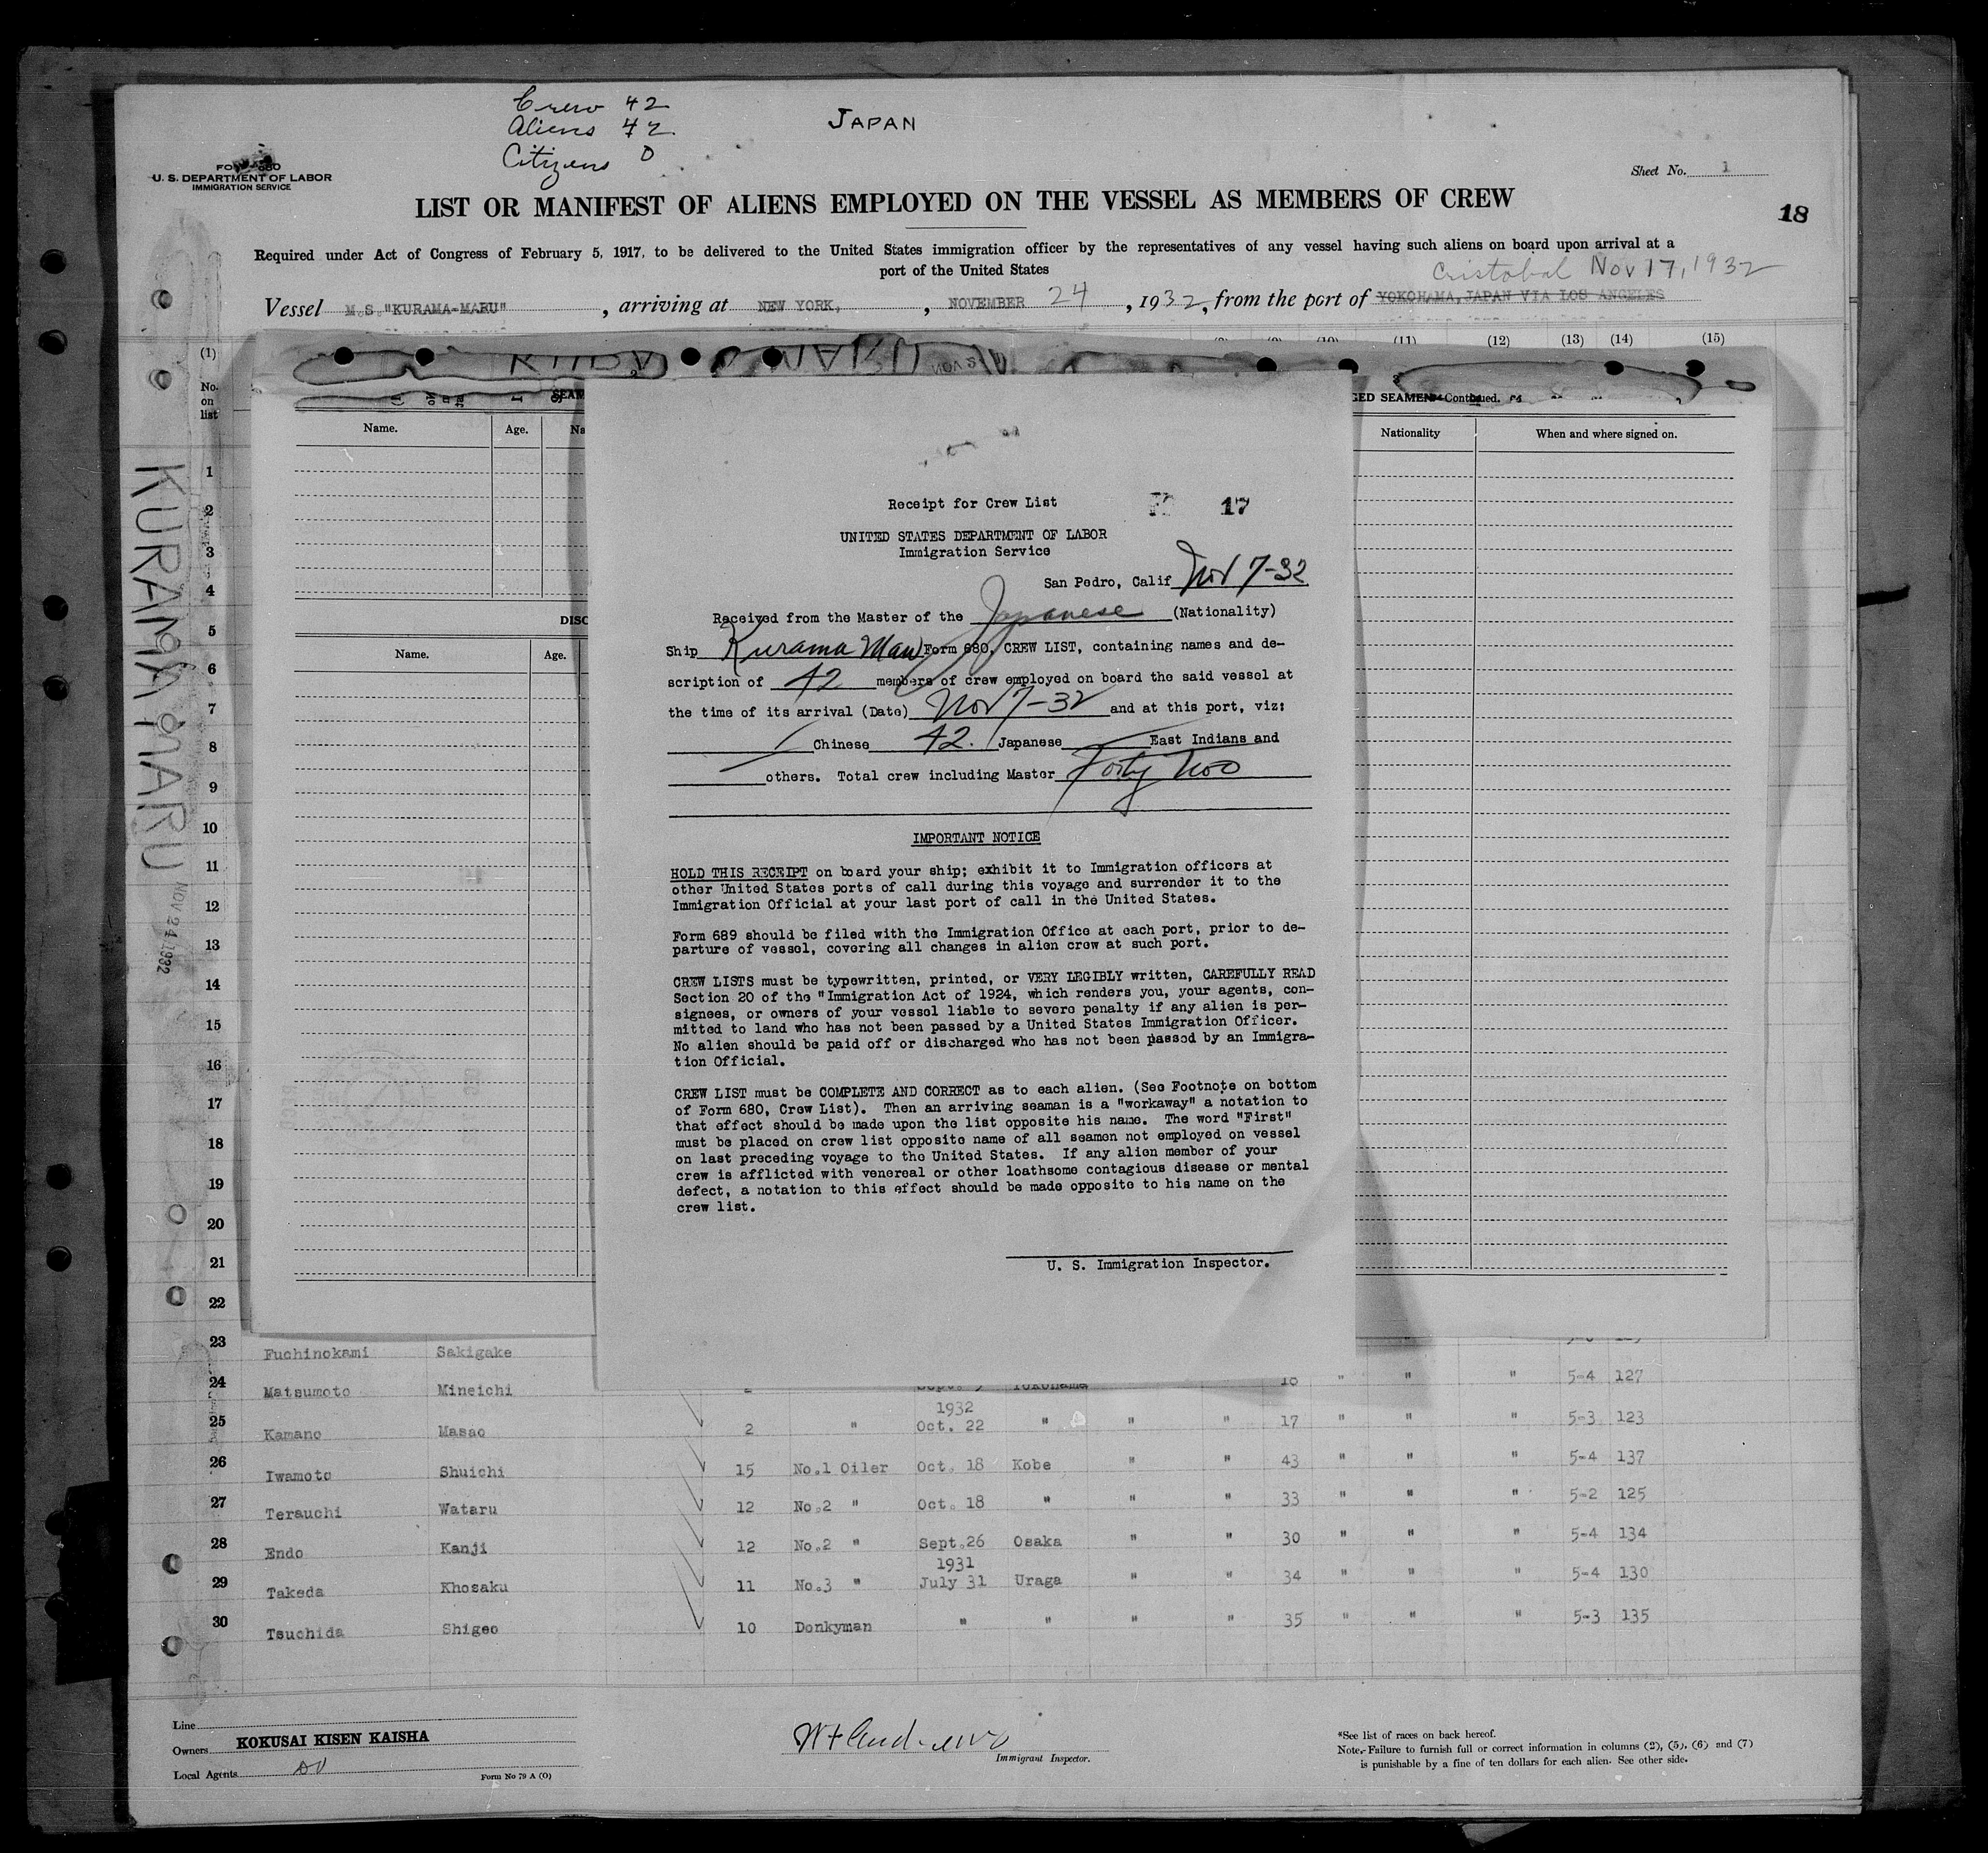 Crew 42
Aliens 42
Citizens 0
JAPAN
U. S. DEPARTMENT OF LABOR
IMMIGRATION SERVICE
Sheet No. 1
LIST OR MANIFEST OF ALIENS EMPLOYED ON THE VESSEL AS MEMBERS OF CREW
18
Required under Act of Congress of February 5, 1917, to be delivered to the United States immigration officer by the representatives of any vessel having such aliens on board upon arrival at a
port of the United States
Cristobal Nov 17, 1932
Vessel M.S."KURAMA-MARU", arriving at NEW YORK, , NOVEMBER 24, 1932, from the port of YOKOHAMA, JAPAN VIA LOS ANGELES
(1) (11) (12) (13) (14) (15)
No. on list
KURAMA MARU
NOV 24 1932
GED SEAMEN—Continued.
Name. Age. Na
Nationality When and where signed on.
DISC
Name. Age.
1
2
3
4
5
6
7
8
9
10
11
12
13
14
15
16
17
18
19
20
21
22
Receipt for Crew List
17
UNITED STATES DEPARTMENT OF LABOR
Immigration Service
San Pedro, Calif Nov 7-32
Received from the Master of the Japanese (Nationality)
Ship Kurama Maru Form 680, CREW LIST, containing names and de-
scription of 42 members of crew employed on board the said vessel at
the time of its arrival (Date) Nov 7-32 and at this port, viz:
Chinese 42. Japanese East Indians and
others. Total crew including Master Forty Two
IMPORTANT NOTICE
HOLD THIS RECEIPT on board your ship; exhibit it to Immigration officers at
other United States ports of call during this voyage and surrender it to the
Immigration Official at your last port of call in the United States.
Form 689 should be filed with the Immigration Office at each port, prior to de-
parture of vessel, covering all changes in alien crew at such port.
CREW LISTS must be typewritten, printed, or VERY LEGIBLY written, CAREFULLY READ
Section 20 of the "Immigration Act of 1924, which renders you, your agents, con-
signees, or owners of your vessel liable to severe penalty if any alien is per-
mitted to land who has not been passed by a United States Immigration Officer.
No alien should be paid off or discharged who has not been passed by an Immigra-
tion Official.
CREW LIST must be COMPLETE AND CORRECT as to each alien. (See Footnote on bottom
of Form 680, Crew List). Then an arriving seaman is a "workaway" a notation to
that effect should be made upon the list opposite his name. The word "First"
must be placed on crew list opposite name of all seamen not employed on vessel
on last preceding voyage to the United States. If any alien member of your
crew is afflicted with venereal or other loathsome contagious disease or mental
defect, a notation to this effect should be made opposite to his name on the
crew list.
U. S. Immigration Inspector.
23 Fuchinokami Sakigake
24 Matsumoto Mineichi 18 " " " 5-4 127
1932
25 Kamano Masao 2 " Oct. 22 " " " 17 " " " 5-3 123
26 Iwamoto Shuichi 15 No.1 Oiler Oct. 18 Kobe " " 43 " " " 5-4 137
27 Terauchi Wataru 12 No.2 " Oct. 18 " " " 33 " " " 5-2 125
28 Endo Kanji 12 No.2 " Sept.26 Osaka " " 30 " " " 5-4 134
1931
29 Takeda Khosaku 11 No.3 " July 31 Uraga " " 34 " " " 5-4 130
30 Tsuchida Shigeo 10 Donkyman " " " " 35 " " " 5-3 135
Line
Owners KOKUSAI KISEN KAISHA
Local Agents do
Form No 79 A (O)
Immigrant Inspector.
*See list of races on back hereof.
Note.- Failure to furnish full or correct information in columns (2), (5), (6) and (7)
is punishable by a fine of ten dollars for each alien. See other side.